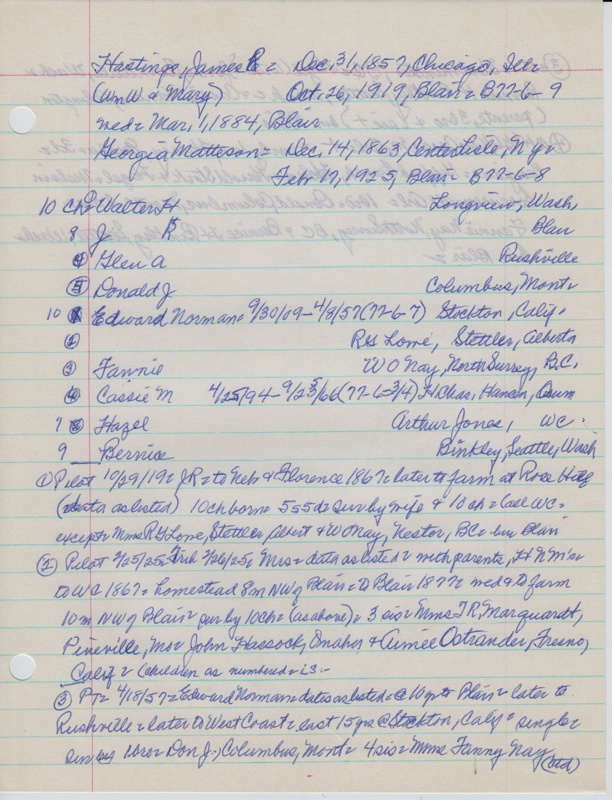 Hastings, James R = Dec. 31, 1857, Chicago, Ill =
(Wm W & Mary) Oct. 26, 1919, Blair = B77-6-9
med = Mar. 1, 1884, Blair
Georgia Matteson = Dec. 14, 1863, Centerlisle, N.Y. =
Feb 17, 1925, Blair = B77-6-8
10 Ch = Walter H Longview, Wash,
8 J R Blair
④ Glen A Rushville
⑤ Donald J Columbus, Mont =
10 Edward Norman = 9/30/09 - 4/8/57 (77-6-7) Stockton, Calif.
② RH Lome, Stettler, Alberta
③ Fannie W O Nay, North Surrey, B.C.
Cassie M 4/25/94 - 9/25/66 (77-6-3/4) H Chas, Hansen, Osum
7 Hazel Arthur Jones, WC.
9 Bernice Binkley, Seattle, Wash
① Pilot 10/29/19 = J R = to Nebr & Florence 1867 = later to farm at Rose Hill
(data as listed) 10 ch born = 5 s 5 d = surv by wife & 10 ch = (all WC =
except = Mmes RH Lome, Stettler, Albert & W O Nay, BC = bur Blair
② Pilot 2/25/25 = 2/26/25, Mrs = data as listed = with parents, H N M'er
to WC 1867 = homestead 8m NW of Blair = to Blair 1877 = med & to farm
10 m NW of Blair = sur by 10 ch = (as above) = 3 sis = Mmes T R, Marquardt,
Pineville, Mo = John Hassock, Omaha & Aimée Ostrander, Fresno,
Calif = (children as numbered = is :-
③ PT = 4/18/57 = Edward Norman = dates as listed = @ 10 yr to Blair = later to
Rushville = later to West Coast = last 15 yrs @ Stockton, Calif = single =
sur by 1 bro = Don J., Columbus, Mont = 4 sis = Mmes Fanny Nay
(ctd)